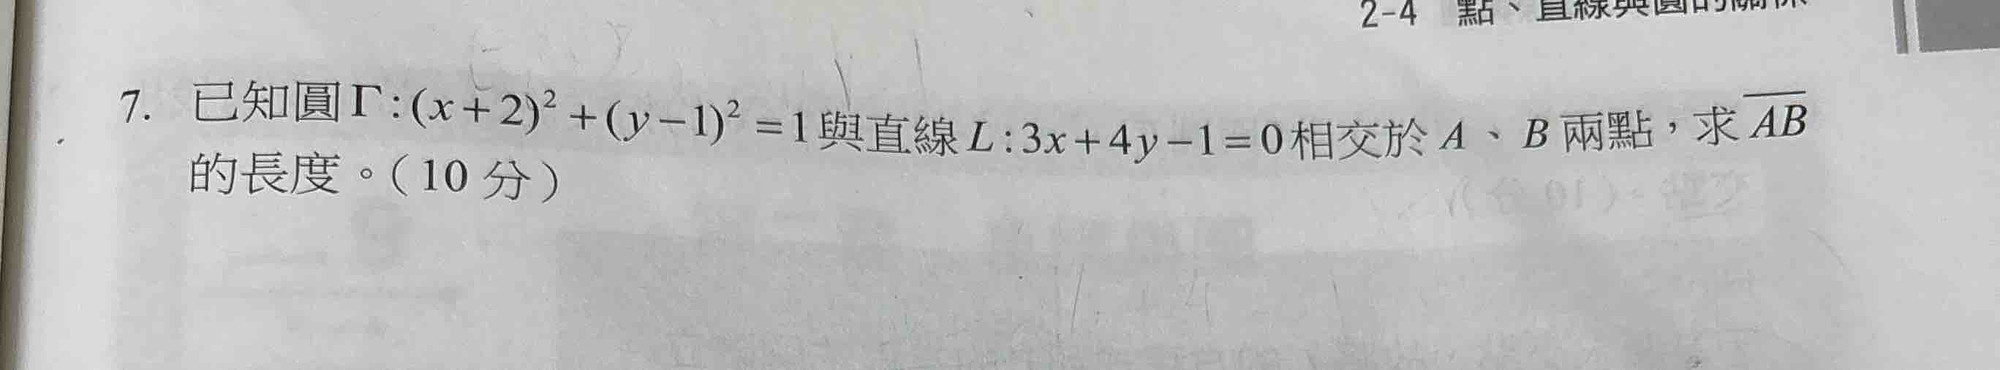 2-4 點、直線與圓的關係
7. 已知圓Γ:(x+2)²+(y−1)²=1與直線L:3x+4y−1=0相交於A、B兩點，求A̅B̅
的長度。(10 分)